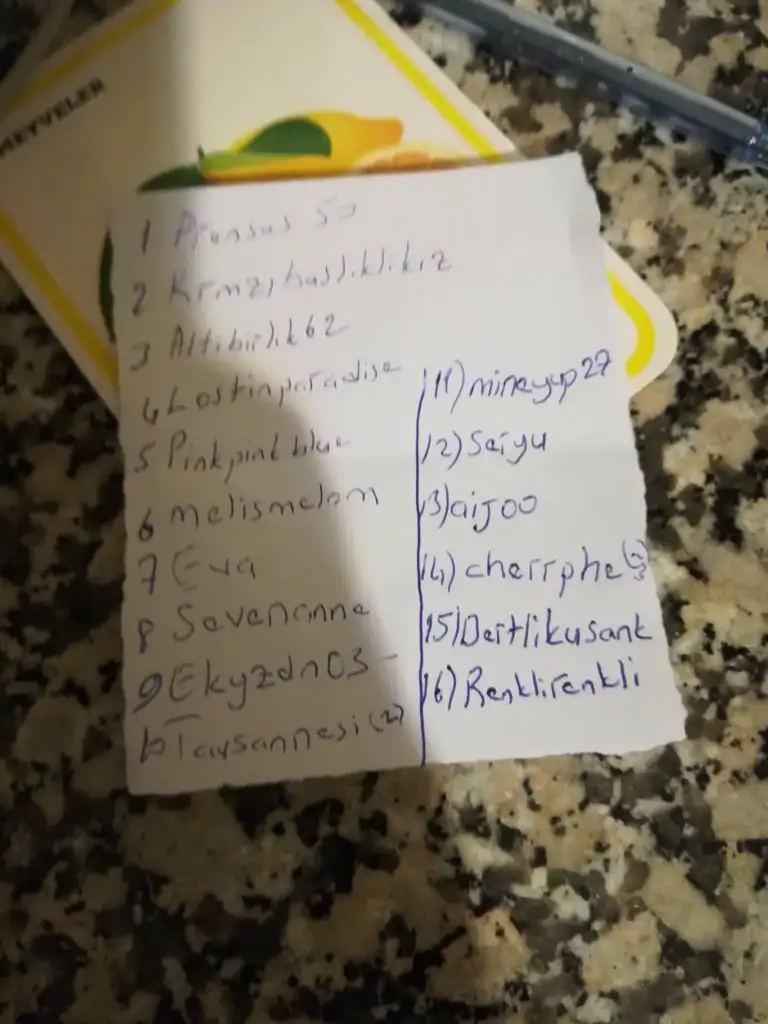 MEYVELER
1 Prensas 53
2 Krmzıbaslıklikiz
3 Altıbirlik62
4 Lostinparadise
5 Pinkpink blue
6 melismelom
7 Eva
8 Sevenanne
9 Ekyzdn03
10 Tavsannesi (2)
11) mineyup27
12) Seiyu
13) aijoo
14) cherrphe
15) Dertlikusank
16) Renklirenkli